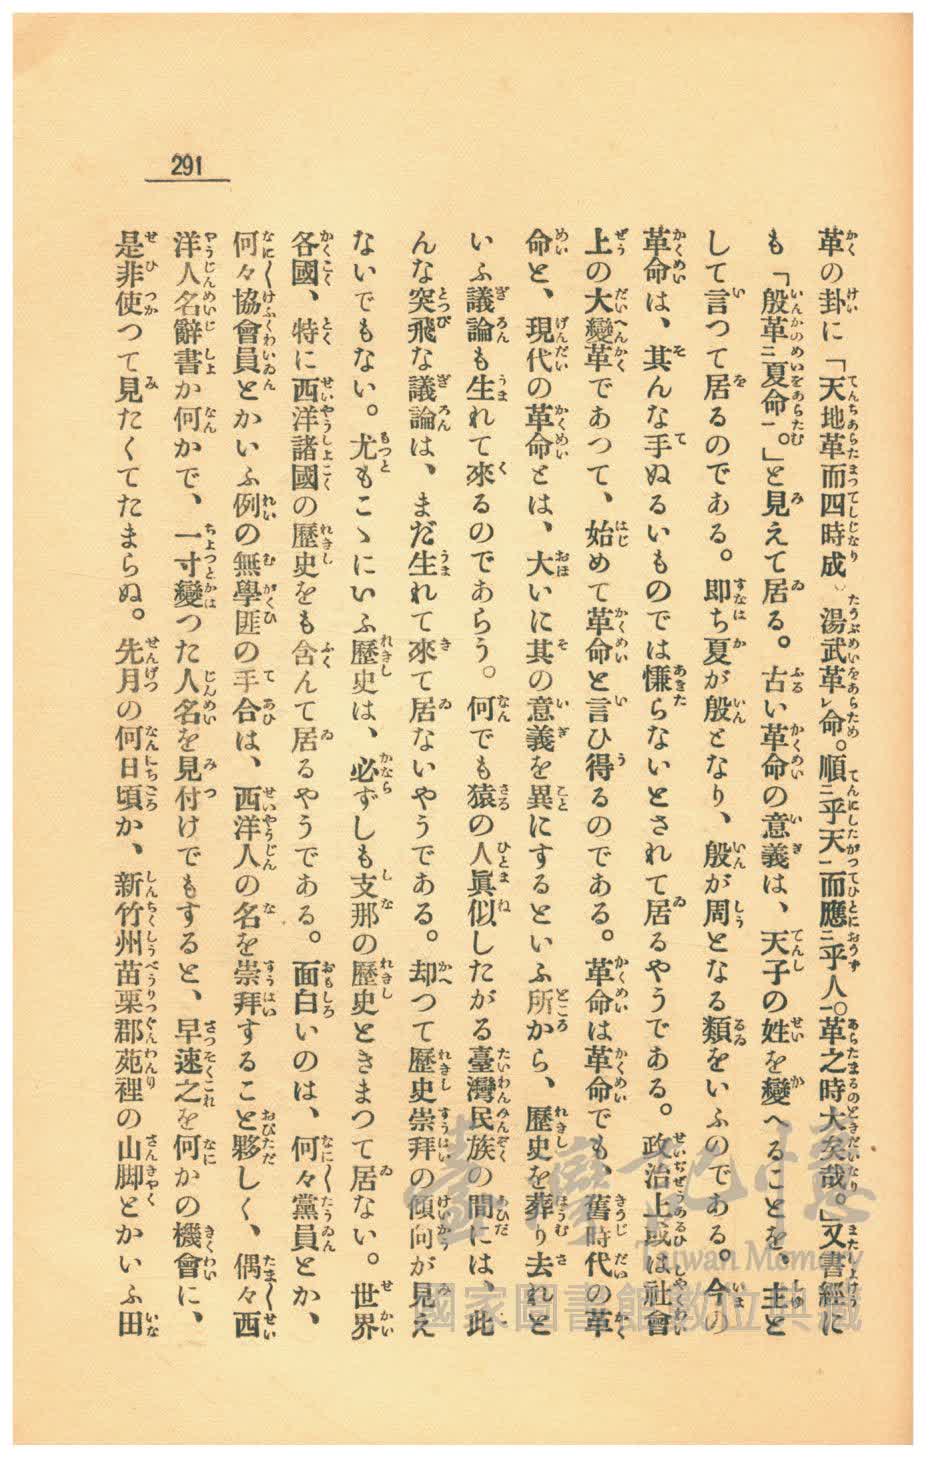 291
革の卦に「天地革而四時成、湯武革レ命。順二乎天一而應二乎人一。革之時大矣哉。」又書經に
も「殷革二夏命一。」と見えて居る。古い革命の意義は、天子の姓を變へることを、主と
して言つて居るのである。即ち夏が殷となり、殷が周となる類をいふのである。今の
革命は、其んな手ぬるいものでは慊らないとされて居るやうである。政治上或は社會
上の大變革であつて、始めて革命と言ひ得るのである。革命は革命でも、舊時代の革
命と、現代の革命とは、大いに其の意義を異にするといふ所から、歷史を葬り去れと
いふ議論も生れて來るのであらう。何でも猿の人眞似したがる臺灣民族の間には、此
んな突飛な議論は、まだ生れて來て居ないやうである。却つて歷史崇拜の傾向が見え
ないでもない。尤もこゝにいふ歷史は、必ずしも支那の歷史ときまつて居ない。世界
各國、特に西洋諸國の歷史をも含んて居るやうである。面白いのは、何々黨員とか、
何々協會員とかいふ例の無學匪の手合は、西洋人の名を崇拜すること夥しく、偶々西
洋人名辭書か何かで、一寸變つた人名を見付けでもすると、早速之を何かの機會に、
是非使つて見たくてたまらぬ。先月の何日頃か、新竹州苗栗郡苑裡の山脚とかいふ田
臺灣記憶
Taiwan Memory
國家圖書館數位典藏